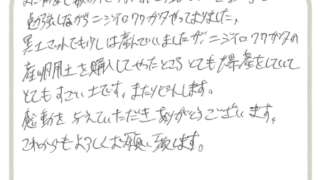 勉強しながらニジイロクワガタやっておりました。
黒土マットでも少しは産んでいましたが、ニジイロクワガタの
産卵用土を購入してやったところとても大爆産をしていて
とてもすごい土です。またリピします。
感動を与えていただきありがとうございます。
これからもよろしくお願い致します。